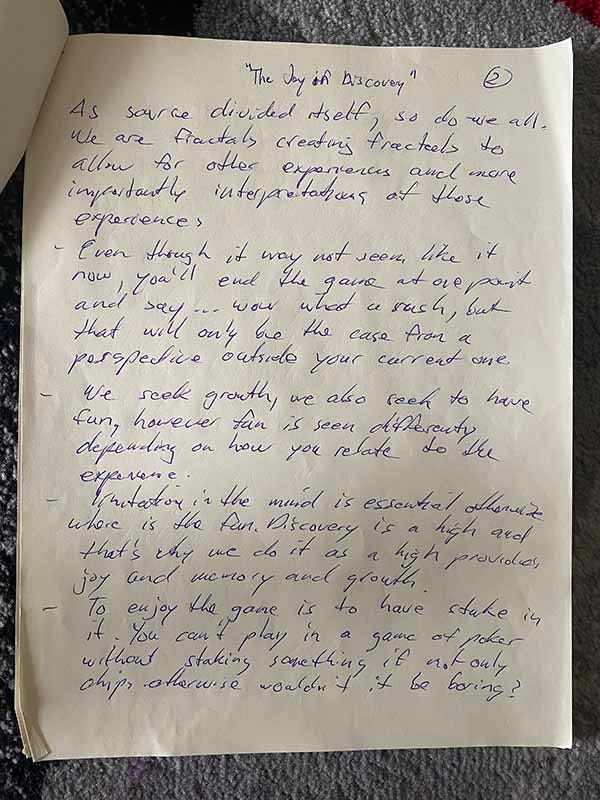 "The Joy of Discovery" 2
As source divided itself, so do we all.
We are fractals creating fractals to
allow for other experiences and more
importantly interpretations of those
experiences
- Even though it may not seem like it
now, you'll end the game at one point
and say... wow what a rush, but
that will only be the case from a
perspective outside your current one.
- We seek growth, we also seek to have
fun, however fun is seen differenty
depending on how you relate to the
experience.
- Limitation in the mind is essential otherwise
where is the fun. Discovery is a high and
that's why we do it as a high provides
joy and memory and growth.
- To enjoy the game is to have stake in
it. You can't play in a game of poker
without staking something if not only
chips otherwise wouldn't it be boring?